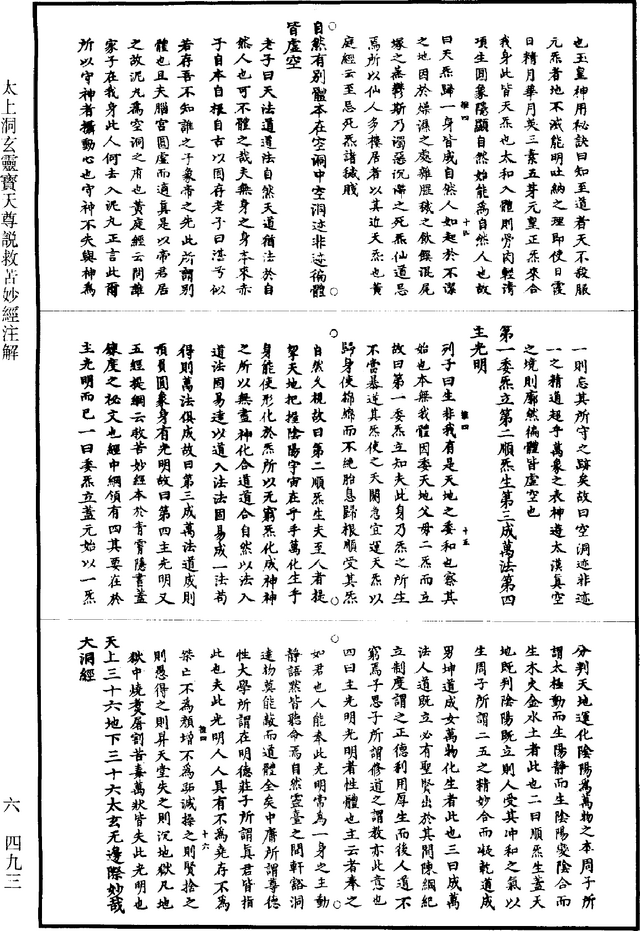 也玉皇神用秘訣曰知至道者天不殺服
元炁者地不滅能明吐納之理即使日霞
日精月華月英三素五芽元皇正炁來合
我身此皆天炁也太和入體則勞肉輕清
項生圓象隱顯自然始能爲自然人也故
曰天炁歸一身皆成自然人如起於不潔
之地因於燥濕之處雜腥穢之飲餵混屍
塚之蒸欝斯乃濁惡沉滯之死炁仙道忌
焉所以仙人多樓居者以其近天炁也黄
庭經云至忌死炁諸穢賤
自然有别體本在空洞中空洞迹非迹徧體
皆虛空
老子曰天法道道法自然天道猶法於自
然人也可不體之哉夫無身之身本來亦
于自本自根自古以固存老子曰湛兮似
若存吾不知誰之子象帝之先此所謂别
體也且夫腦宫圓虛而適真是以帝君居
之故泥丸爲空洞之府也黄庭經云問誰
家子在我身此人何去入泥丸正言此爾
所以守神者攝動心也守神不失與神爲
一則忘其所守之跡矣故曰空洞迹非迹
一之精道超乎萬象之表神遊太漠真空
之境則廓然徧體皆虛空也
第一委炁立第二順炁生第三成萬法第四
主光明
列子曰生非我有是天地之委和也察其
始也本無我體因委天地父母二炁而立
故曰第一委炁立知夫此身乃炁之所生
不當暴逆其炁使之天閼急宜運天炁以
歸身使綿綿而不絶胎息歸根順受其炁
自然久視故曰第二順炁生夫至人者提
挈天地把握陰陽宇宙在乎手萬化生乎
身能使形化於炁所以無窮炁化成神神
之所以無盡神化合道道合自然以法入
道法固易達以道入法法固易成一法苟
得則萬法俱成故曰第三成萬法道成則
項負圓象身有光明故曰第四主光明又
五經提綱云救苦妙經本於青霄隱書蓋
鍊度之秘文也經中綱領有四其要在於
主光明而已一曰委炁立蓋元始以一炁
分判天地運化陰陽爲萬物之本周子所
謂太極動而生陽靜而生陰陽變陰合而
生木火金水土者此也二曰順炁生蓋天
地既列陰陽既立則人受其冲和之氣以
生周子所謂二五之精妙合而凝乾道成
男坤道成女萬物化生者此也三曰成萬
法人道既立必有聖賢出於其間陳綱紀
立制度謂之正德利用厚生而後人道不
窮焉子思子所謂修道之謂教亦此意也
四曰主光明光明者性體也主云者奉之
如君也人能奉此光明常爲一身之主動
靜語黙皆聽命焉自然靈臺之間軒豁洞
達物莫能蔽而道體全矣中庸所謂尊德
性大學所謂在明德莊子所謂真君皆指
此也夫此光明人人具有不爲堯存不爲
桀亡不爲顏增不爲跖減操之則賢捨之
則愚得之則昇天堂失之則沉地獄凡地
獄中燒煑屠割苦毒萬狀皆失此光明也
天上三十六地下三十六太玄无邊際妙哉
大洞經
維四
十四
維四
十五
維四
十六
太上洞玄靈寶天尊説救苦妙經注解
六
四九三